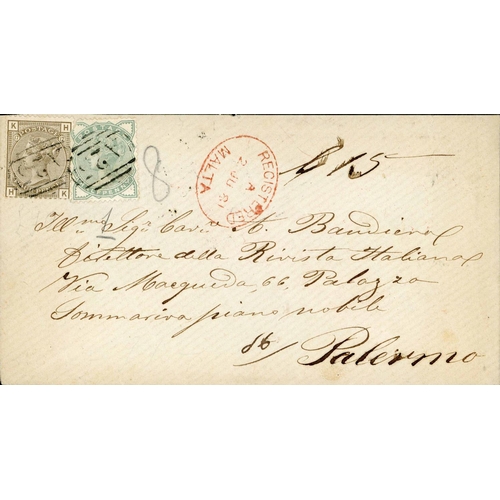 K H
POSTAGE
H K
A25
8
REGISTERED
A
MALTA
1
Ill.mo Sig. Cav.re A. Bandiera
Direttore della Rivista Italiana
Via Macqueda, 66, Palazzo
Sommariva piano nobile
Palermo